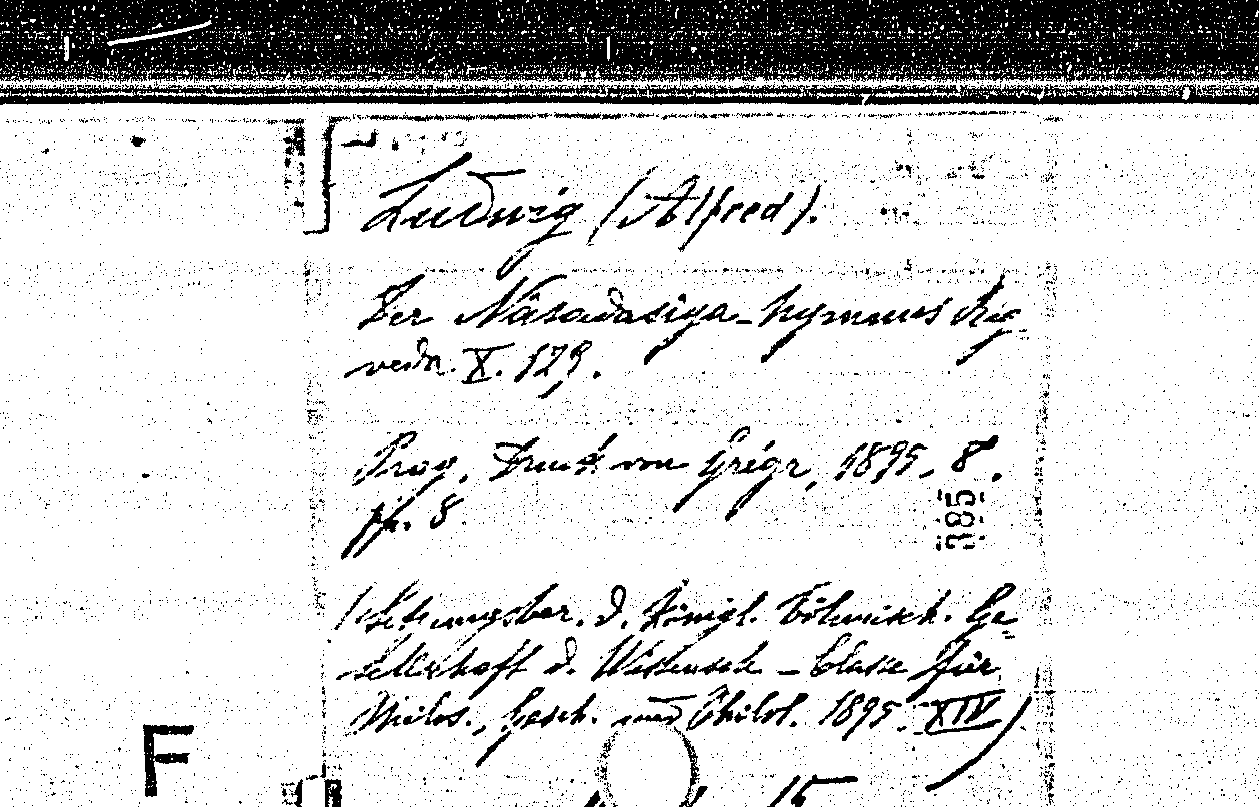 Ludwig (Alfred).
Der Nâsadasîya-hymnus Rig-
veda X. 129.
Prag, Druck von Grégr, 1895, 8°.
pp. 8
385
(Sitzungsber. d. Königl. Böhmisch. Ge-
sellschaft d. Wissensch. - Classe für
Philos., Gesch. und Philol. 1895. XIV)
F
15